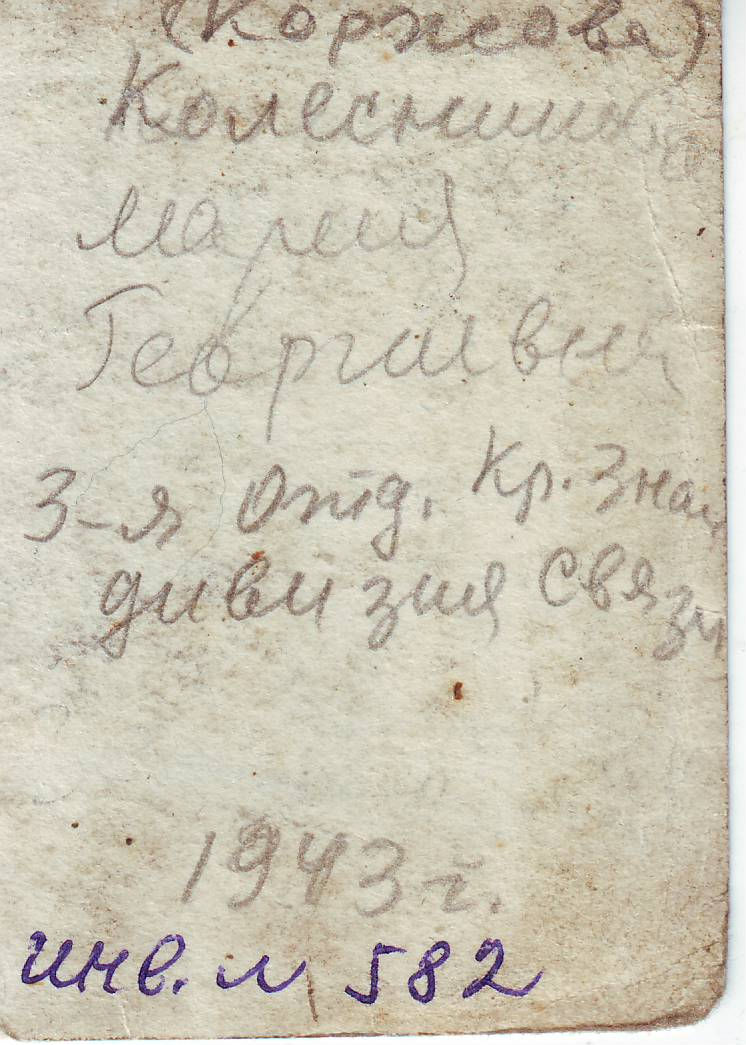 (Коржова)
Колесникова
Мария
Георгиевна
3-я отд. Кр. Знам
дивизия связи
1943 г.
инв. № 582